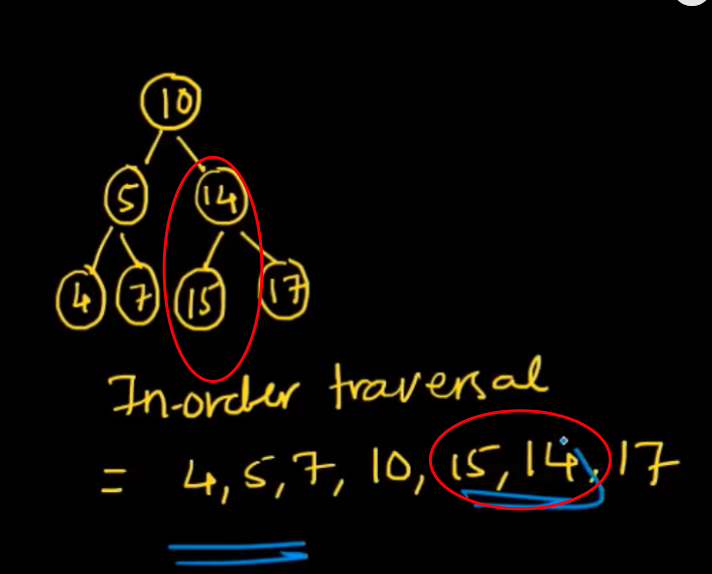 10
5 14
4 7 15 17
In-order traversal
= 4, 5, 7, 10, 15, 14, 17